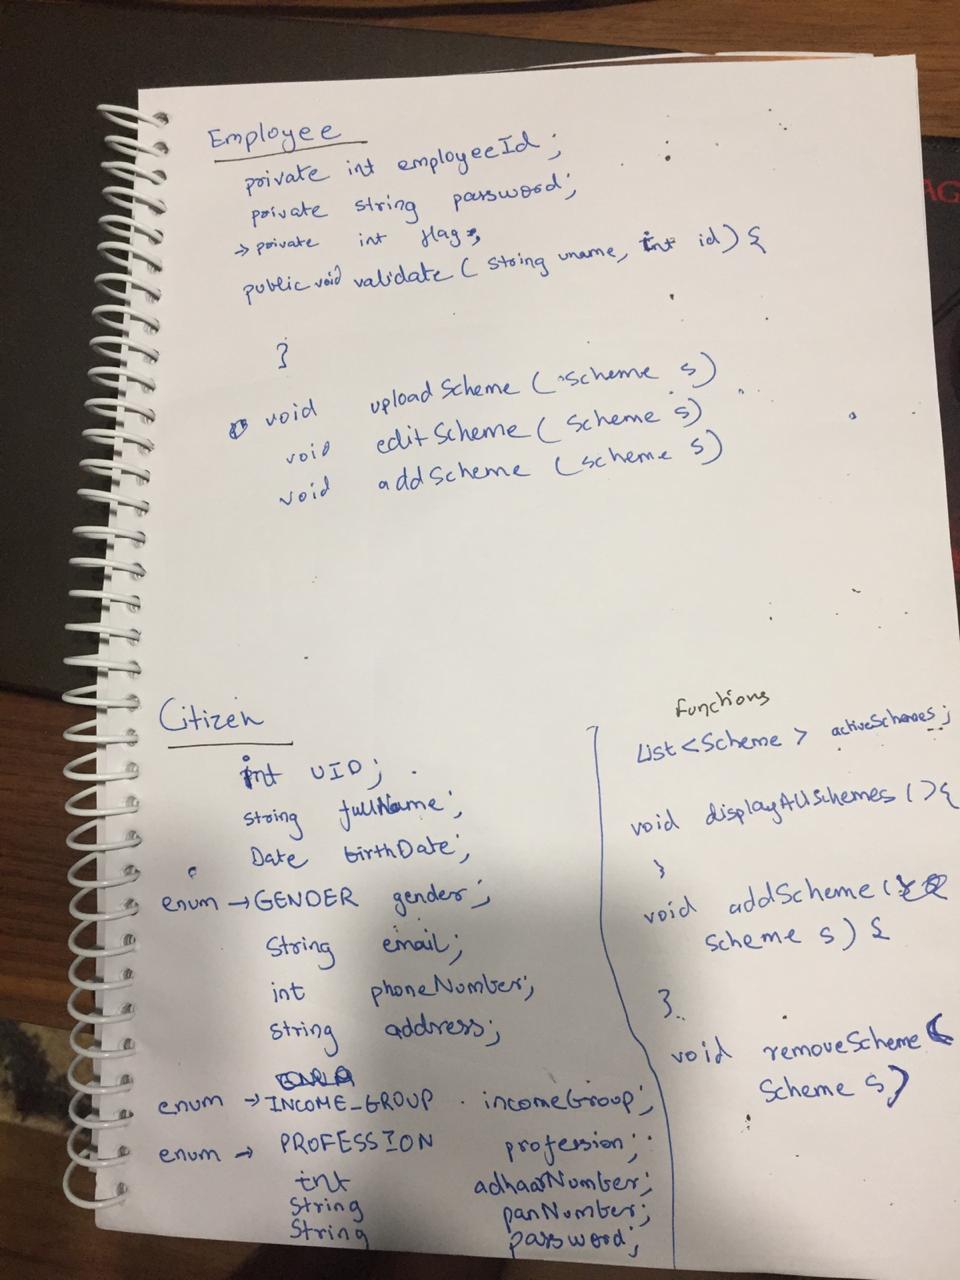 Employee
private int employeeId;
private string password;
→ private int flag;
public void validate (string uname, int id) {
}
void upload Scheme (scheme s)
void edit Scheme (Scheme s)
void addScheme (scheme s)
Citizen
int UID;
string fullName;
Date birthDate;
enum → GENDER gender;
String email;
int phoneNumber;
string address;
enum → INCOME_GROUP incomeGroup;
enum → PROFESSION profession;
int adhaarNumber;
String panNumber;
String password;
functions
List <Scheme> activeSchemes;
void displayAllSchemes () {
}
void addScheme (
scheme s) {
}
void removeScheme (
Scheme s)
AG